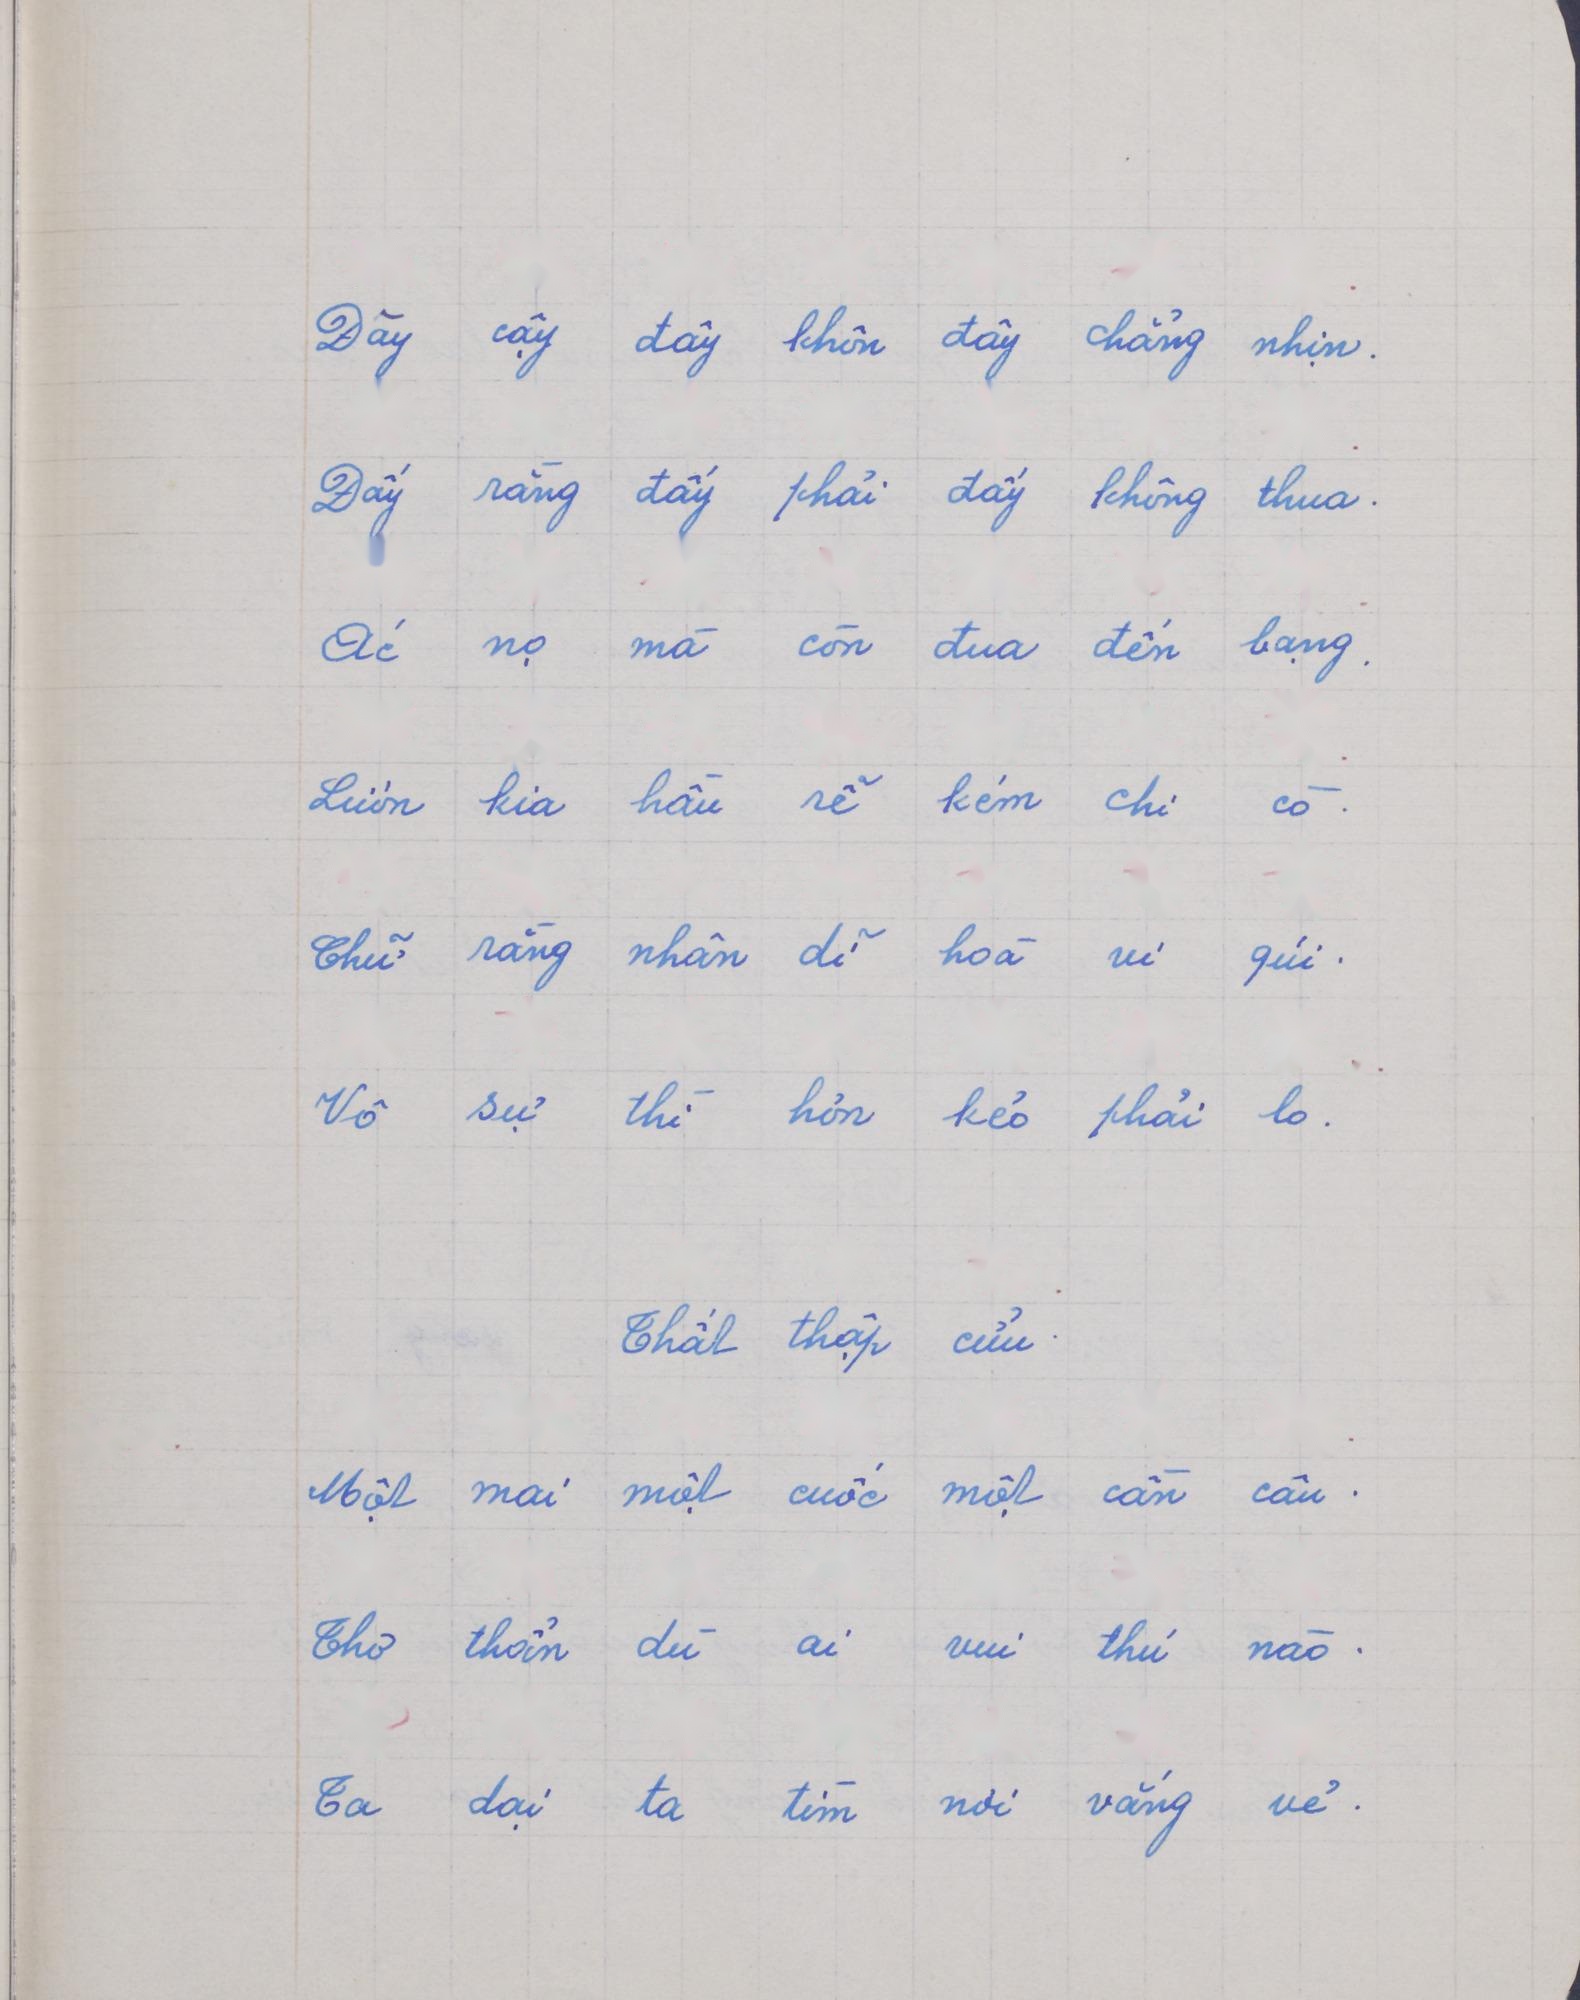 Đây cậy đây khôn đây chẳng nhịn.
Đấy rằng đấy phải đấy không thua.
Ác nọ mà còn đua đến bạng.
Lươn kia hầu rễ kém chi cò.
Chữ rằng nhân dĩ hoà vi qúi.
Vô sự thì hơn kẻo phải lo.
Thất thập cửu.
Một mai một cuốc một cần câu.
Thơ thẩn dù ai vui thú nào.
Ta dại ta tìm nơi vắng vẻ.